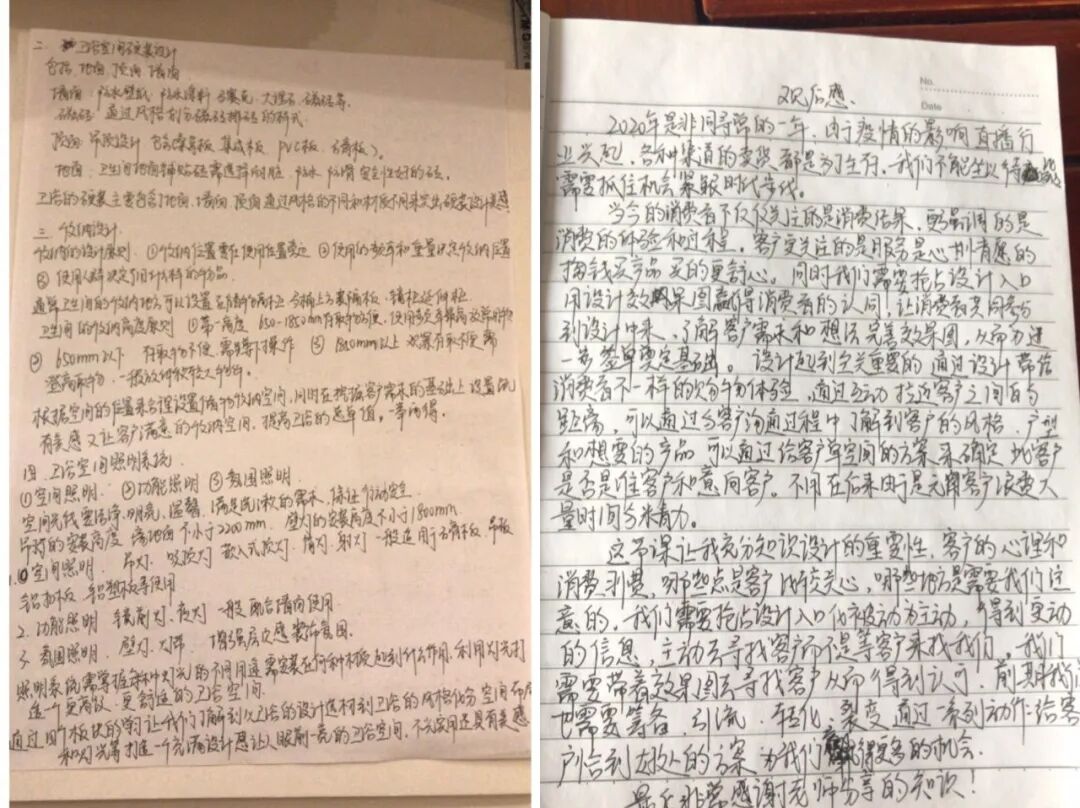 二 卫浴空间硬装设计
包括 地面、顶面、墙面
墙面: 防水壁纸 防水涂料 马赛克、大理石、磁砖等.
磁砖 通过风格划分磁砖排砖的样式
顶面 吊顶设计 包含 集成板 PVC板、石膏板).
地面: 卫生间地面铺贴砖需选择耐脏、防水、防滑安全性好的砖.
卫浴的硬装主要包含地面、墙面、顶面通过风格的不同和材质不同来突出硬装设计美感
三 收纳设计.
收纳的设计原则 ①收纳位置要在使用位置旁边 ②使用的频率和重量决定收纳位置
③ 使用人群决定用什么样的物品.
通常卫生间的收纳地方可以设置在 马桶上方 隔板、镜柜
卫生间的收纳高度原则 ①第一高度 650-1850mm存取物方便, 使用频率最高
② 650mm以下 存取物不便, 需要蹲下操作 ③ 1850mm以上 存取不便 需
登高取物、一般放
根据空间的位置来合理设置储物收纳空间, 同时在挖掘客户需求的基础上 设置既
有美感又让客户满意的收纳空间. 提高卫浴的客单值, 一举两得.
四. 卫浴空间照明系统.
①空间照明. ②功能照明 ③氛围照明
空间光线要洁净、明亮、温馨、满足 的需求, 保证行动安全.
吊灯的安装高度 离地面不小于2200mm, 壁灯的安装高度不小于1800mm.
1.空间照明. 吊灯 吸顶灯 嵌入式顶灯、筒灯、射灯 一般适用于石膏板、吊板
铝扣板 铝塑板等使用
2. 功能照明 镜前灯、夜灯 一般配合墙面使用.
3. 氛围照明. 壁灯 灯带. 增强层次感 氛围.
照明系统需掌握每种灯光的不同用途 需安装在何种木板 起到什么作用. 利用灯光打
造一个更高级、更舒适的卫浴空间.
通过四个板块的学习让我们了解到从卫浴的设计选材到卫浴的风格化分 空间布局
和灯光等打造一个充满设计感让人眼前一亮的卫浴空间、不光实用还具有美感
No.
Date
观后感.
2020年是非同寻常的一年, 由于疫情的影响 直播行
业兴起, 各种渠道的变奖都是为了生存. 我们不能坐以待毙
需要抓住机会紧跟时代步伐.
当今的消费者不仅仅关注的是消费结果, 更强调的是
消费的体验和过程. 客户更关注的是服务是心甘情愿的
掏钱买产品 买的更舒心. 同时我们需要抢占设计入口
用设计效果图赢得消费者的认同, 让消费者共同参与
到设计中来. 了解客户需求和想法 完善效果图. 从而为进
一步签单奠定基础. 设计起到至关重要的 通过设计带给
消费者不一样的购物体验. 通过互动 拉近客户之间的
距离. 可以通过与客户沟通过程中了解到客户的风格、户型
和想要的产品 可以通过给客户单空间的方案来确定此客户
是否是准客户和意向客户. 不用在后来由于是无用客户浪费大
量时间与精力.
这节课让我充分知识设计的重要性. 客户的心理和
消费 , 哪些点是客户成交关心, 哪些地方是需要我们注
意的. 我们需要抢占设计入口化被动为主动, 得到互动
的信息, 主动去寻找客户而不是等客户来找我们. 我们
需要带着效果图去寻找客户从而得到认可. 前期我们
也需要筹备、引流、转化、裂变. 通过一系列动作给客
户恰到好处的方案 为我们 更多的机会.
最后非常感谢老师分享的知识!